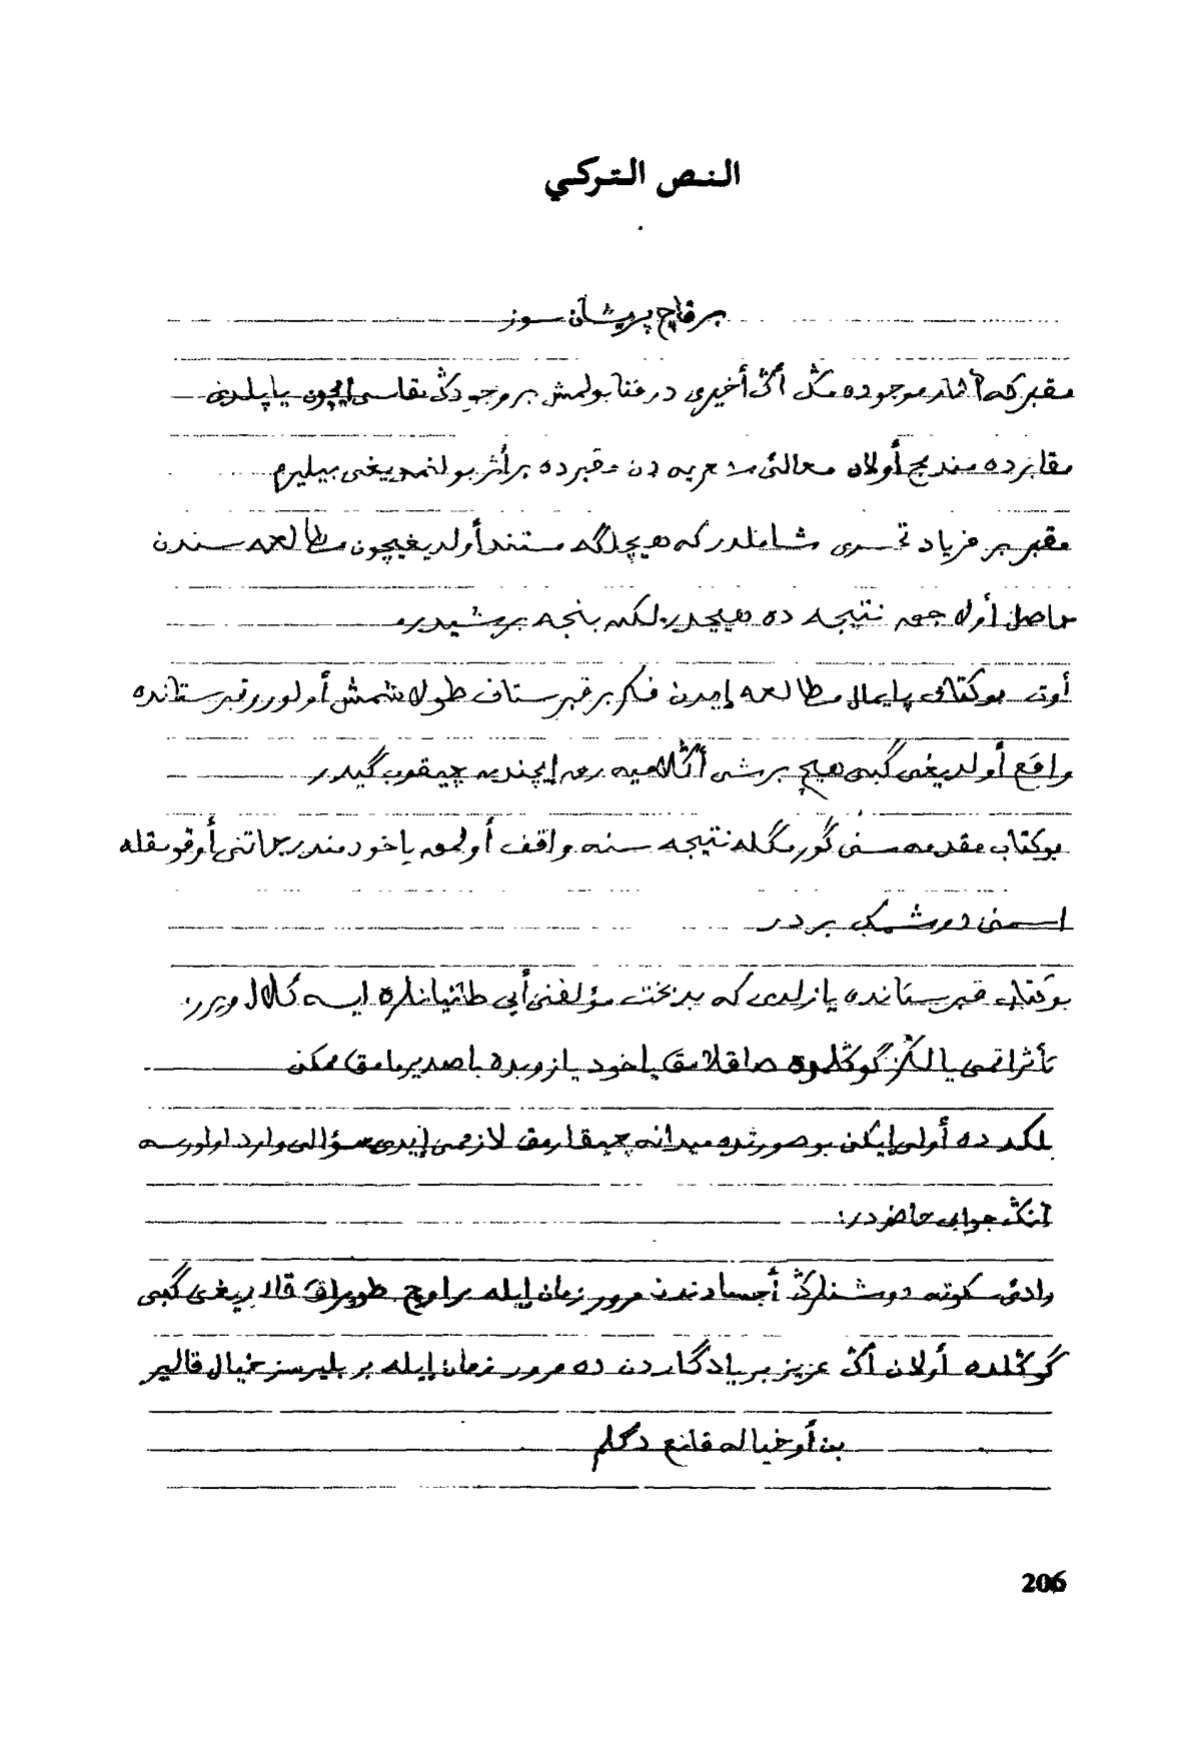 النص التركي
بر قاچ پريشان سوز
مقبركه آثار موجوده مڭ أڭ أخيرى در فنا بولمش بر وجودڭ بقاسى ايچون ياپلدى
مقابرده مندمج أولان معالئ دن مقبرده بر أثر بولنمديغنى بيليرم
مقبر بر فرياد تحسرى شاملدر كه هيچلگه مستند أولديغيچون مطالعه سندن
حاصل أوله جق نتيجه ده هيچدر لكن بنجه بر شيدر
أوت بو كتابى پايمال مطالعه إيدن فكر بر قبرستان طولاشمش أولور قبرستانده
واقع أولديغى گبى هيچ بر شى أڭلاميه رق إيچندن چيقوب گيدر
بو كتاب مقدمه سنى گورمگله نتيجه سنه واقف أولمق ياخود مندرجاتنى أوقومقله
اسمنى دوشمك بردر
بو كتاب قبرستانده يازلدى كه بدبخت مؤلفنى أيى طانيانلره ايسه كلال ويرر
تأثراتمى يالڭز گوڭلمده صاقلامق ياخود يازوبده باصديرمامق ممكن
بلكه ده أولى إيكن بو صورتده ميدانه چيقارمق لازممى إيدى سؤالى وارد اولورسه
آنڭ جوابى حاضردر:
وادئ سكوته دوشنلرڭ أجسادندن مرور زمان إيله بر اوچ طوپراق قالديغى گبى
گوڭلده أولان أڭ عزيز بر يادگاردن ده مرور زمان إيله بر بليرسز خيال قالير
بن أو خياله قانع دگلم
206